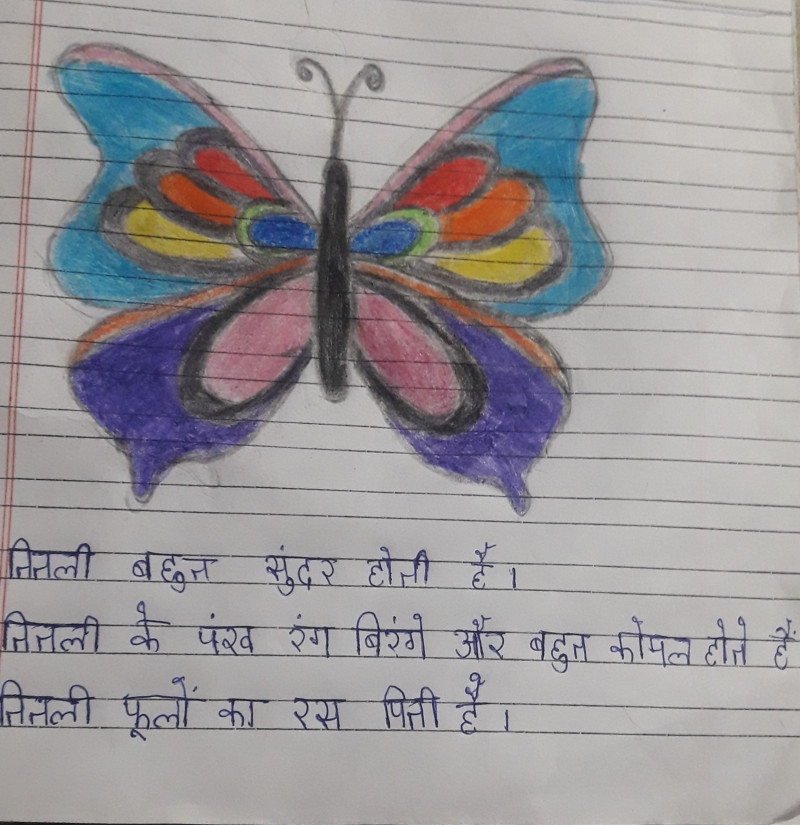 तितली बहुत सुंदर होती है।
तितली के पंख रंग बिरंगे और बहुत कोमल होते हैं
तितली फूलों का रस पिती है।